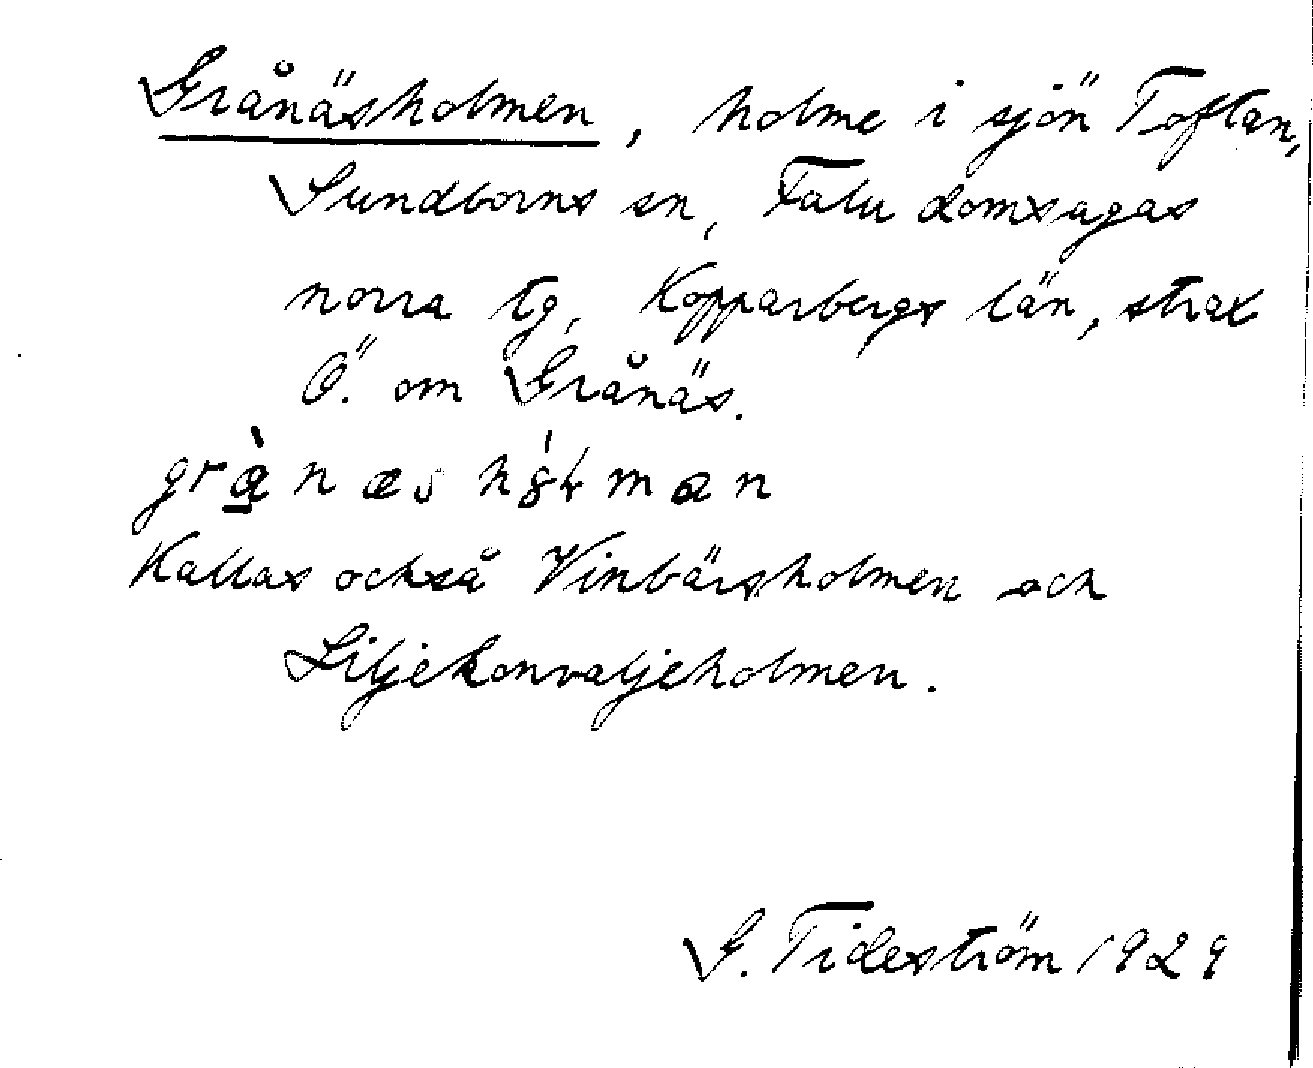 Grånäsholmen, holme i sjön Toftan,
Sundborns sn, Falu domsagas
norra tg, Kopparbergs län, strax
Ö. om Grånäs.
Kallas också Vinbärsholmen och
Liljekonvaljeholmen.
G. Tideström 1929